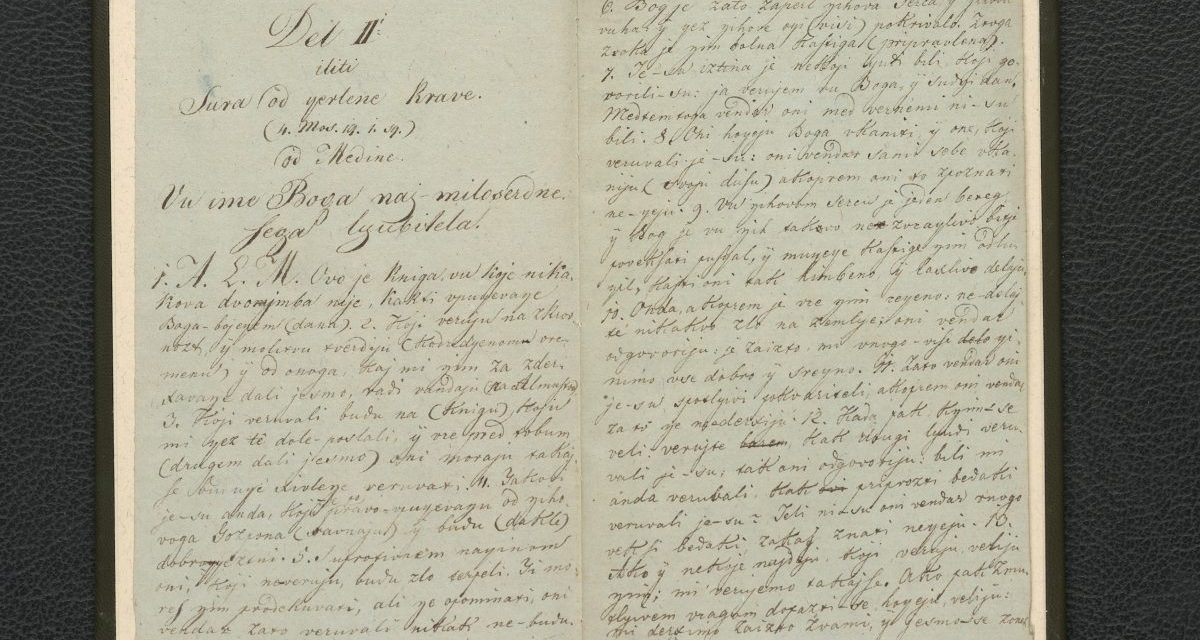 Del II:
iliti
Sura od yerlene krave.
(4. Mos. 19. 1. 19.)
od Medine.
Vu ime Boga naj-miloserdne.
sega lyubitela.
1. A. L. M. Ovo je kniga, vu koje nika.
kova dvoyumba nije, kakti vpuyevanye
Boga-bojenem (dana) 2. Koji veruju na zkrov
nozt, y molitvu tverdiju (kodredjenomu vre
menu) y od onoga, kaj mi nyim za zder.
xavanye dali jesmo, radi vandaju
3. Koji veruvali budu na (knigu), koju
mi yez te dole-poslali, y vre pred tobum
(drugem dali jesmo) oni moraju takaj.
se buduye xivlene veruvati. 4. Takovi
je-su anda, koji pravo-vuyevanye od nyiho
voga Gozpona (ravnaju) y budu (dakle)
5. Suprotivnem nayinom
oni, koji neveruju, budu zlo terpeli. Ti mo.
res nyim prodekuvati, ali ne opominati, oni
vendar zato veruvali nikaki ne-budu.
6. Bog je zato zaperl nyihova serca, y
vuha: y yez nyihove oyi (visi) pokrivalo. Zvoga
zroka je nyim bolna kastiga (pripravlena).
7. Je-su iztina je nekoji lyudi bili koji go.
vorili-su: ja verujem vu Boga, y sudnji dan,
Medtemtoga vendar oni med vernemi ni-su
bili. 8. Oni hoyeju Boga vkaniti, y one, koji
veruvali je-su: oni vendar sami sebe vka.
niju (svoju dusu) akoprem oni to zpoznati
ne-yeju. 9. Vu nyihovom sercu je jeden beteg,
y Bog je vu nyih takovo zvrayliv
povekfati pustal, y muyeye kastige nyim odlu
yal, kajti oni tak himbeno, y laxlivo deluju.
10. Onda, akoprem je vre nyim reyeno: ne-delaj
te nikakvo zlo na zemlye; oni vendar
odgovoriju: je zaizto mi vnogo-vise yi.
nimo, vse dobro y sreyno. 11. Zato vendar oni
je-su spotlyivi potvariteli, akoprem oni vendar
za to nje nederziju. 12. Kada pak nyim-se
veli verujte kak drugi lyudi veru.
vali je-su; tak oni odgovoriju: bili mi
anda veruvali, kak priprozti bedaki
veruvali je-su? Jeli ni-su oni vendar vnogo
vekfi bedaki, zakaj znati neyeju. 13.
Ako y nekoje najdeju, koji veruju, veliju
nyim: mi verujemo takajse. Ako pak
vragom dojazti-se hoyeju, veliju:
mi dersimo zaizto zvami, y jesmo-se